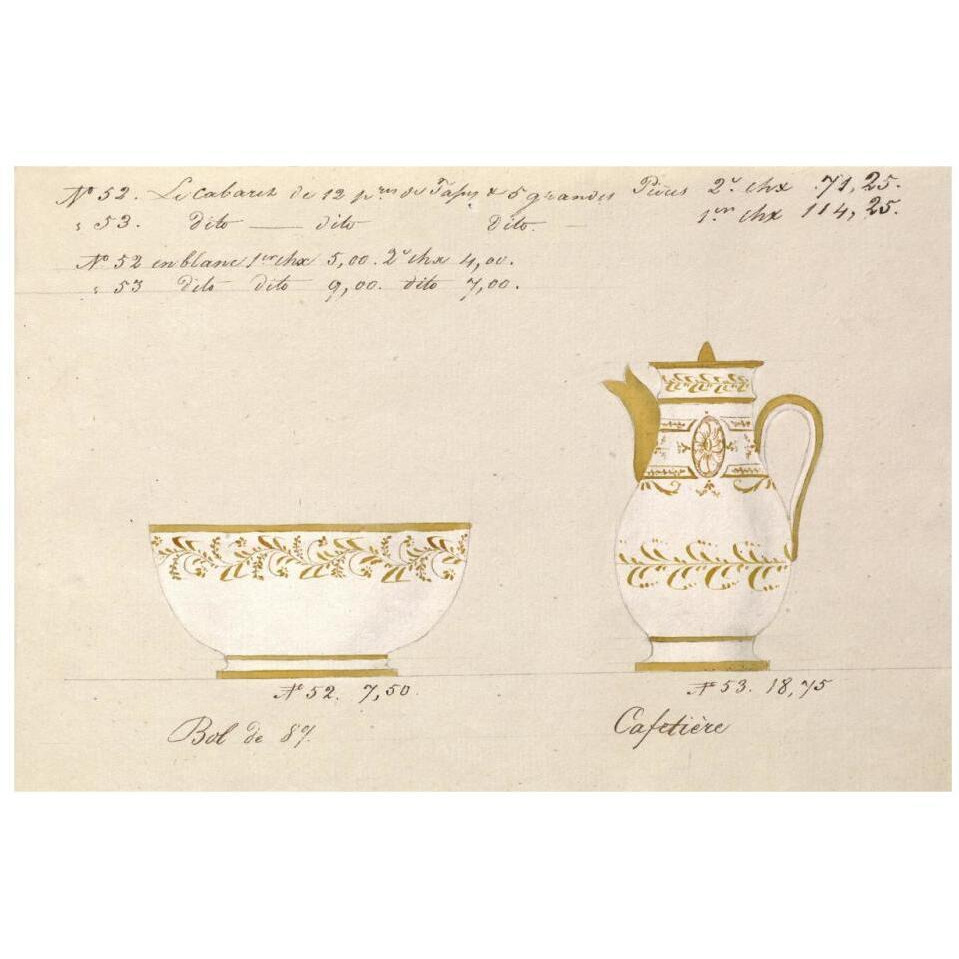 No 52. Le Cabaret de 12 pres de Tasses & 5 grandes Pièces 2e chx 71,25.
" 53. Dito — dito Dito. — 1er chx 114,25.
No 52 en blanc 1er chx 5,00. 2e chx 4,00.
" 53 Dito Dito 9,00. dito 7,00.
No 52. 7,50.
No 53. 18,75
Bol de 8
Cafetière